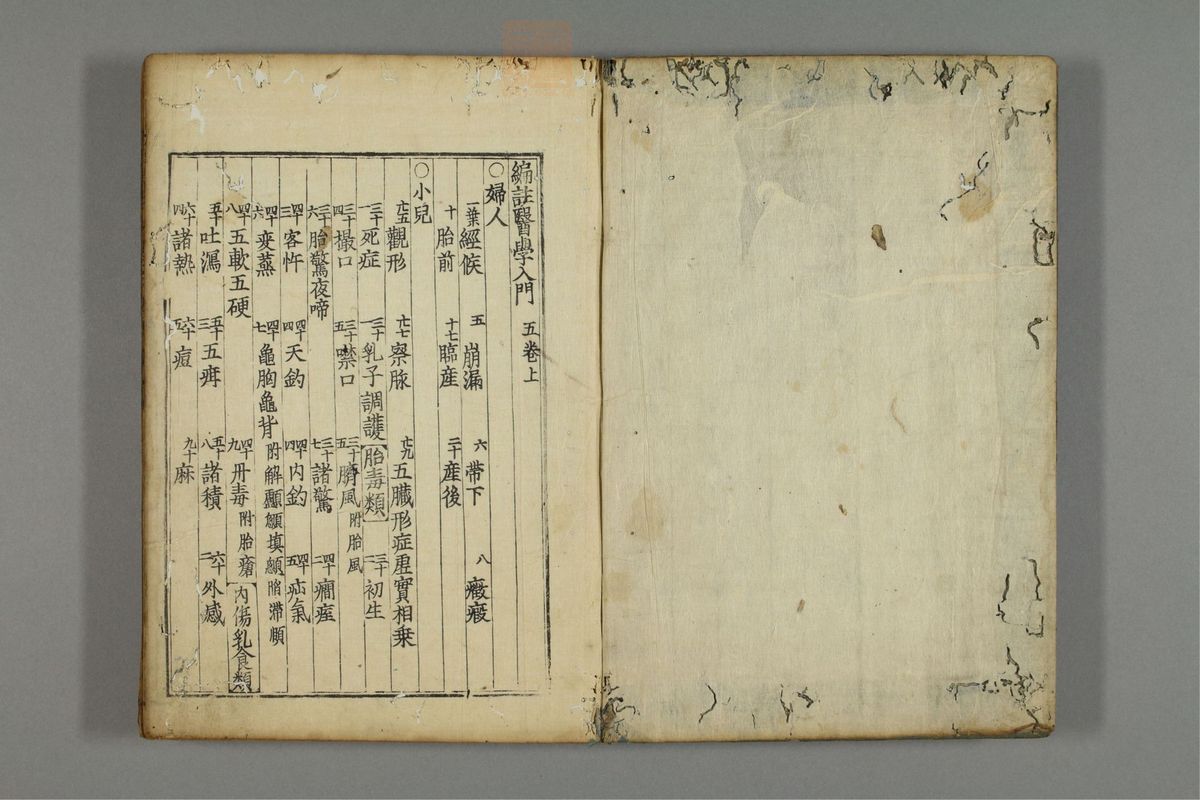 編註醫學入門　五卷上
〇婦人
一葉經候　五崩漏　六帶下　八癥瘕
十胎前　十七臨産　二十産後
〇小兒
廿五觀形　廿七察脉　廿九五臟形症虛實相乗
三十一死症　三十一乳子調護【胎毒類】三十二初生
三十四撮口　三十五噤口　三十五臍風附胎風
三十六胎驚夜啼　三十七諸驚　四十二癎痓
四十三客忤　四十四天釣　四十四内釣　四十五疝氣
四十六変蒸　四十七龜胸龜背附解顱顖填顖陷滯頥
四十八五軟五硬　四十九丹毒附胎瘡【内傷乳食類】
五十吐瀉　五十三五疳　五十八諸積　六十二外感
六十四諸熱　六十五痘　九十麻